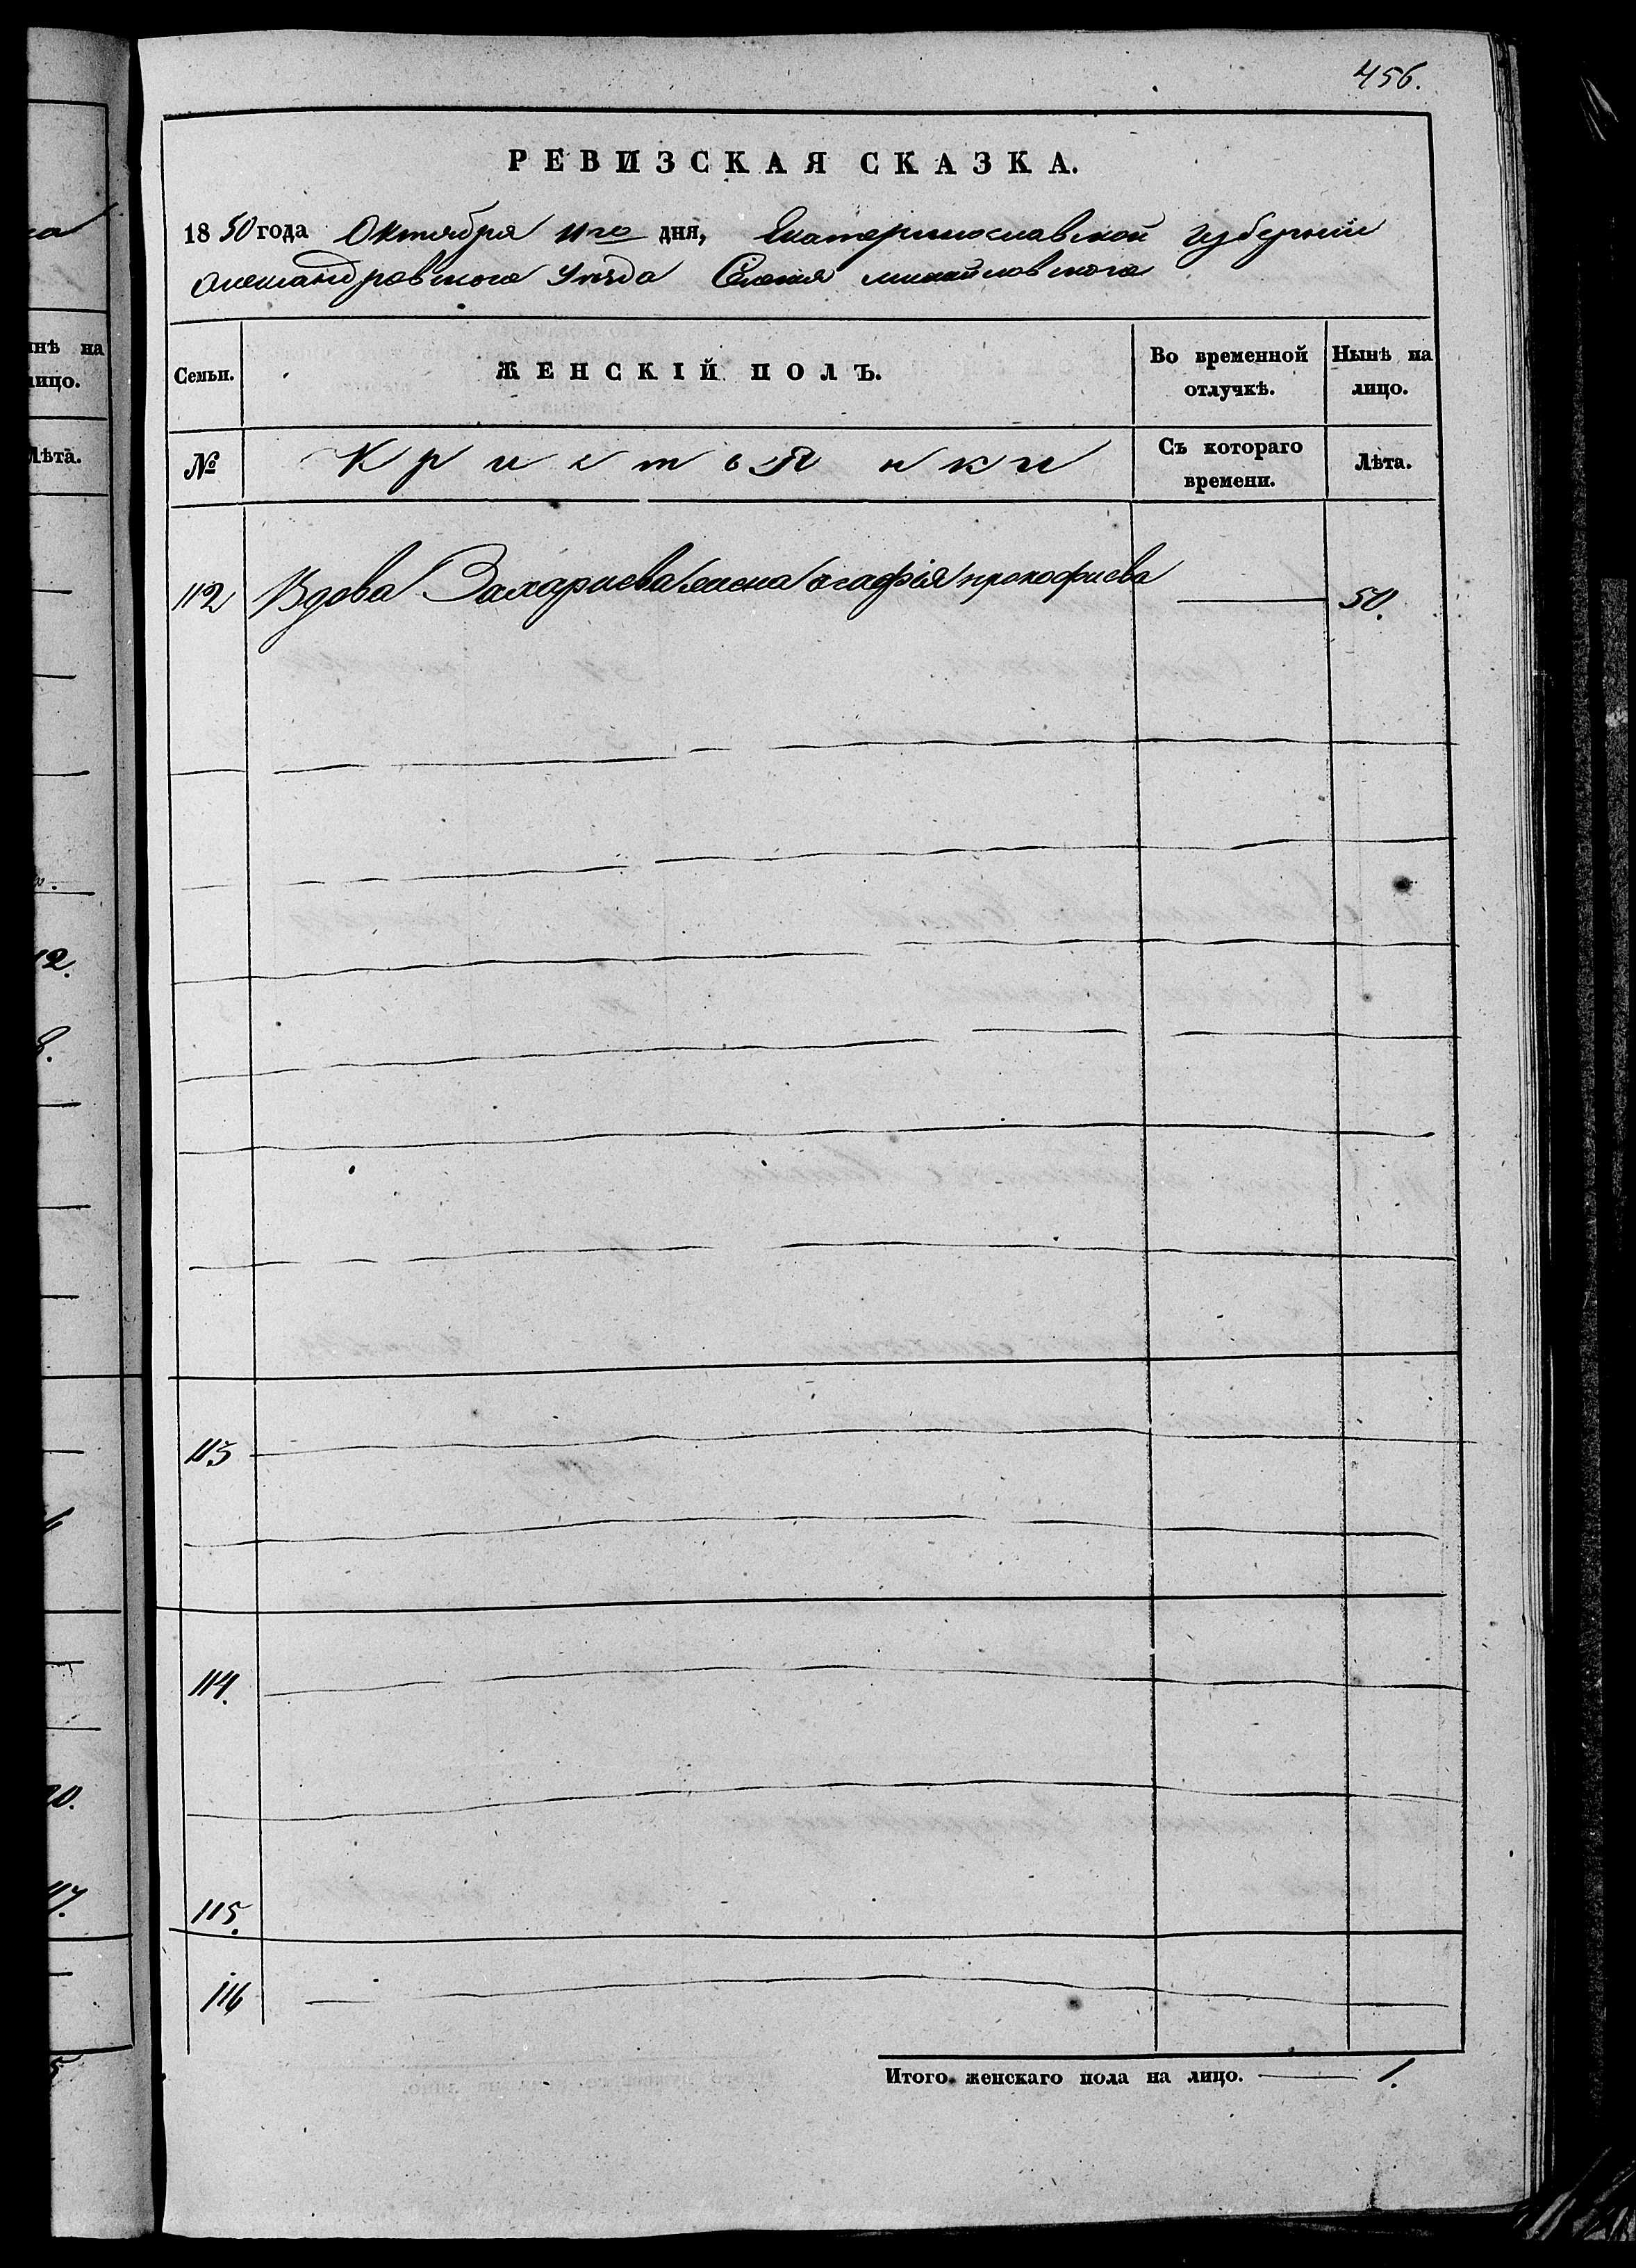 456.
РЕВИЗСКАЯ СКАЗКА.
1850 года Октября 11го дня, Екатеринославской губернии
Александровского Уезда Селения михайловского
Семьи.
ЖЕНСКІЙ ПОЛЪ.
Во временной отлучкѣ.
Нынѣ на лицо.
№
Кристьянки
Съ котораго времени.
Лѣта.
112 Вдова Захариева жена агафія прокофиева 50.
113
114.
115.
116
Итого женскаго пола на лицо. 1.
нѣ на
лицо.
Лѣта.